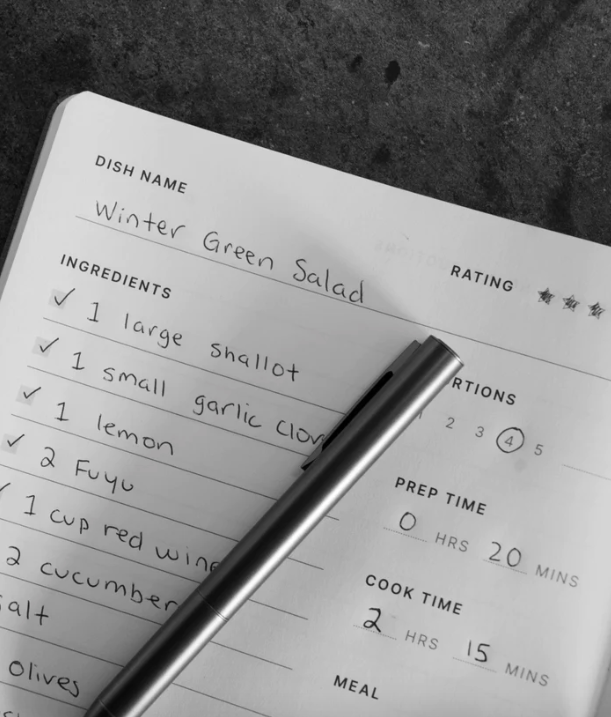 DISH NAME
Winter Green Salad
RATING
INGREDIENTS
1 large shallot
1 small garlic
1 lemon
2 Fuyu
1 cup red wine
2 cucumber
salt
olives
PORTIONS
1 2 3 4 5
PREP TIME
0 HRS 20 MINS
COOK TIME
2 HRS 15 MINS
MEAL